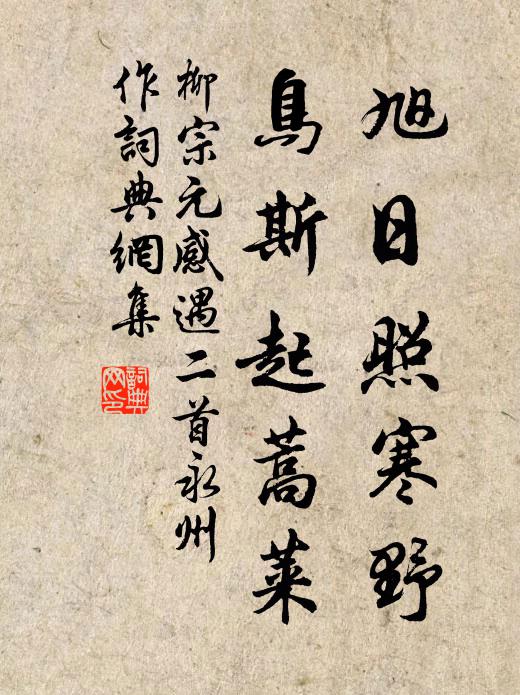 旭日照寒野
鳥斯起蒿萊
柳宗元感遇二首永州
作詞典網集
詞典
网印